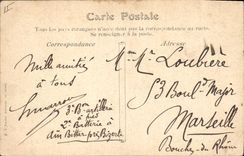 Carte Postale
Tous les pays étrangers n'acceptent pas la correspondance au recto.
Se renseigner à la poste.
Correspondance
Adresse
Mille amitiés
à tous
3e Bon d'artillerie
à pied
2e Batterie à
Aïn Bittar près Bizerte
Mr Mme Loubière
53 Bould Major
Marseille
Bouches du Rhône